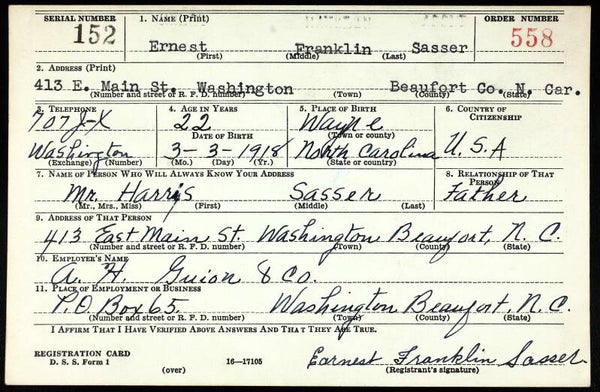 SERIAL NUMBER 1. NAME (Print) ORDER NUMBER
152 Ernest Franklin Sasser 558
(First) (Middle) (Last)
2. ADDRESS (Print)
413 E. Main St. Washington Beaufort Co. N. Car.
(Number and street or R. F. D. number) (Town) (County) (State)
3. TELEPHONE 4. AGE IN YEARS 5. PLACE OF BIRTH 6. COUNTRY OF CITIZENSHIP
707 J-X 22 Wayne
DATE OF BIRTH (Town or county)
Washington 3-3-1918 North Carolina U.S.A
(Exchange) (Number) (Mo.) (Day) (Yr.) (State or country)
7. NAME OF PERSON WHO WILL ALWAYS KNOW YOUR ADDRESS 8. RELATIONSHIP OF THAT PERSON
Mr. Harris Sasser Father
(Mr., Mrs., Miss) (First) (Middle) (Last)
9. ADDRESS OF THAT PERSON
413 East Main St. Washington Beaufort, N. C.
(Number and street or R. F. D. number) (Town) (County) (State)
10. EMPLOYER'S NAME
A. H. Guion & Co.
11. PLACE OF EMPLOYMENT OR BUSINESS
P.O Box 65. Washington Beaufort, N.C.
(Number and street or R. F. D. number) (Town) (County) (State)
I AFFIRM THAT I HAVE VERIFIED ABOVE ANSWERS AND THAT THEY ARE TRUE.
REGISTRATION CARD
D. S. S. Form 1 (over) 16—17105 Earnest Franklin Sasser
(Registrant's signature)